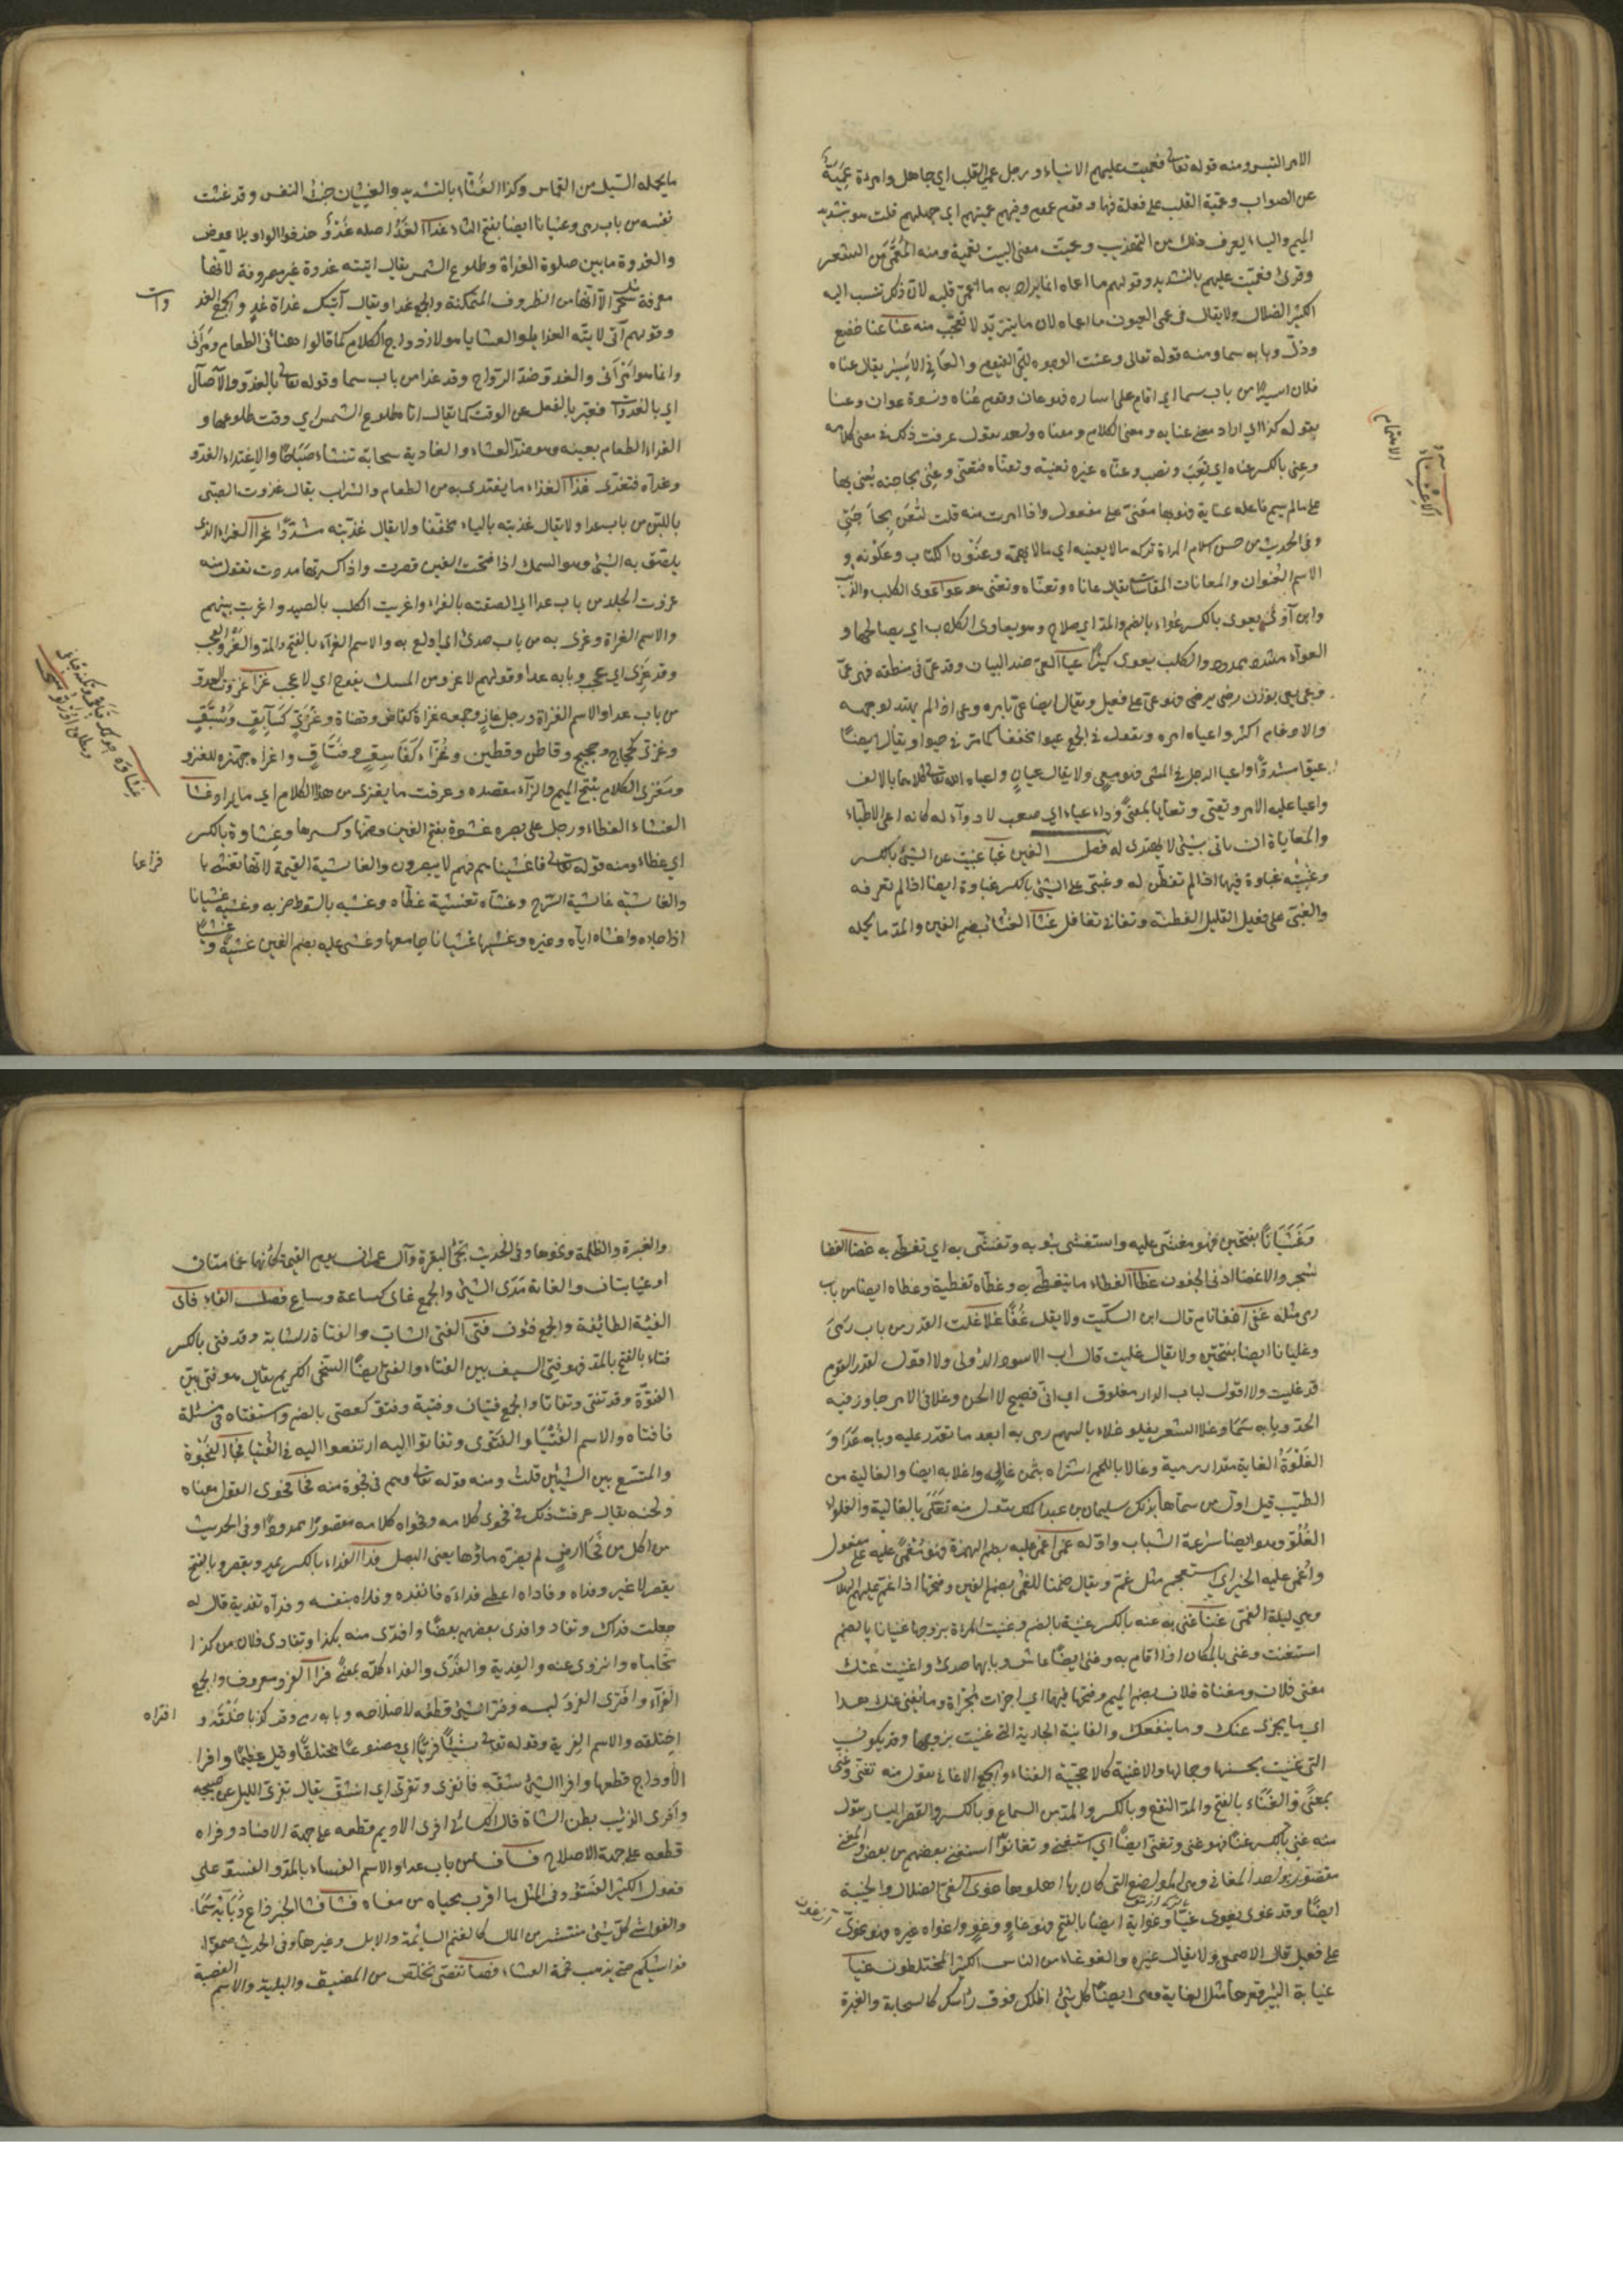 الامر التبس ومنه قوله تعالى فعميت عليهم الانباء ورجل عمي القلب اي جاهل وامرأة عمية
عن الصواب وعمية القلب على فعلة فيهما وقوم عمون وفيهم عميتهم اي جهلهم قلت هو بتشديد
الميم والياء يعرف ذلك من التهذيب وعميت معنى البيت تعمية ومنه المعمى من الشعر
وقرئ فعميت عليهم بالتشديد وقولهم ما اعماه انما يراد به ما اعمى قلبه لان ذلك ينسب اليه
الكثير الضلال ولا يقال في عمى العيون ما اعماه لان ما يتزيد لا يتعجب منه عنا عنا خضع
وذل وبابه سما ومنه قوله تعالى وعنت الوجوه للحي القيوم والعاني الاسير يقال عناه
فلان اسيرا من باب سما اي اقام على اساره فهو عان وقوم عناة ونسوة عوان وعنا
بقوله كذا اي اراد معنى عنايه ومعنى الكلام ومعناه واحد يقول عرفت ذلك في معنى كلامه
وعني بالكسر عناء اي تعب ونصب وعناه غيره تعنية وتعناه فتعنى وعني بحاجته يعنى بها
على ما لم يسم فاعله عناية فهو بها معني على مفعول واذا امرت منه قلت لتعن بحاجتي
وفي الحديث من حسن اسلام المرء تركه ما لا يعنيه اي ما لا يهمه وعنون الكتاب وعلونه و
الاسم العنوان والمعانات المقاسات يقال عاناه وتعناه وتعنى هو عوا عوى الكلب والذئب
وابن آوى يعوي بالكسر عواء بالضم والمد اي صاح وهو يعاوي الكلاب اي يصايحها و
العواء مشدد ممدود الكلب يعوي كثيرا عيا العي ضد البيان وقد عي في منطقه فهو عي
وعيي يعيى بوزن رضي يرضى فهو عيي على فعيل ويقال ايضا عي بامره وعيي اذا لم يهتد لوجهه
والادغام اكثر واعياه امره وتقول في الجمع عيوا مخففا كما مر في حيوا ويقال ايضا
عيوا مشددا واعيا الرجل في المشي فهو معي ولا يقال عيان واعياه الله تعالى كلاهما بالالف
واعيا عليه الامر وتعيى وتعايا بمعنى وداء عياء اي صعب لا دواء له كانه اعيى الاطباء
والمعاياة ان ياتي بشيء لا يهتدى له فصل الغين غبا غبيت عن الشيء بالكسر
وغبيته غباوة فيهما اذا لم تفطن له وغبي علي الشيء بالكسر غباوة ايضا اذا لم تعرفه
والغبي على فعيل القليل الفطنة وتغابى تغافل غثا الغثاء بضم الغين والمد ما يحمله
ما يحمله السيل من القماش وكذا الغثاء بالتشديد والغثيان خبث النفس وقد غثت
نفسه من باب رمى وغثيانا ايضا بفتح الثاء غدا الغد اصله غدو حذفوا الواو بلا عوض
والغدوة ما بين صلوة الغداة وطلوع الشمس يقال اتيته غدوة غير مصروفة لانها
معرفة مثل سحر الا انها من الظروف المتمكنة والجمع غدا ويقال آتيك غداة غد والجمع الغدوات
وقولهم اني لآتيه الغدايا والعشايا هو لازدواج الكلام كما قالوا هنأني الطعام ومرأني
وانما هو امرأني والغدو ضد الرواح وقد غدا من باب سما وقوله تعالى بالغدو والآصال
اي بالغدوات فعبر بالفعل عن الوقت كما يقال اتانا طلوع الشمس اي وقت طلوعها و
الغداء الطعام بعينه وهو ضد العشاء والغادية سحابة تنشأ صباحا والاغتداء الغدو
وغداه فتغدى غذا الغذاء ما يغتذى به من الطعام والشراب يقال غذوت الصبي
باللبن من باب عدا ولا يقال غذيته بالياء مخففا ولا يقال غذيته مشددا غرا الغراء الذي
يلصق به الشيء وهو السمك اذا فتحت الغين قصرت واذا كسرتها مددت تقول منه
غروت الجلد من باب عدا اي الصقته بالغراء واغريت الكلب بالصيد واغريت بينهم
والاسم الغراة وغري به من باب صدي اي اولع به والاسم الغراء بالفتح والمد والغرو العجب
وقد غري اي عجب وبابه عدا وقولهم لا غرو من المسك يفوح اي لا عجب غزا غزوت العدو
من باب عدا والاسم الغزاة ورجل غاز وجمعه غزاة كقاض وقضاة وغزى كسابق وسبق
وغزي كحاج وحجيج وقاطن وقطين وغزاء كفاسق وفساق واغزاه جهزه للغزو
ومغزى الكلام بفتح الميم والزاء مقصده وعرفت ما يغزى من هذا الكلام اي ما يراد غشا
الغشاء الغطاء ورجل على بصره غشوة بفتح الغين وضمها وكسرها وغشاوة بالكسر
اي غطاء ومنه قوله تعالى فاغشيناهم فهم لا يبصرون والغاشية القيمة لانها تغشى با
فزاعها
والغاشية غاشية السرج وغشاه تغشية غطاه وغشيه بالسوط ضربه وغشيه غشيانا
اذا جاءه واغشاه اياه وغيره وغشيها غشيانا جامعها وغشي عليه بضم الغين غشية و غشيا
وغشيانا بفتحتين فهو مغشي عليه واستغشى بثوبه وتغشى به اي تغطى به غضا الغضا
شجر والاغضاء ادنى الجفون غطا الغطاء ما يتغطى به وغطاه تغطية وغطاه ايضا من باب
رمى مثله غفا اغفا نام قال ابن السكيت ولا يقل غفا غلا غلت القدر من باب رمى
وغليانا ايضا بفتحتين ولا يقال غليت قال ابو الاسود الدؤلي ولا اقول لقدر القوم
قد غليت ولا اقول لباب الدار مغلوق اي اني فصيح لا الحن وغلا في الامر جاوز فيه
الحد وبابه سما وغلا السعر يغلو غلاء بالسهم رمى به ابعد ما تقدر عليه وبابه عدا و
الغلوة الغاية مقدار رمية وغالا باللحم اشتراه بثمن غال واغلا به ايضا والغالية من
الطيب قيل اول من سماها بذلك سليمان بن عبدالملك يقول منه تغلى بالغالية والغلواء
الغلو وهو ايضا سرعة الشباب واوله غما اغمي عليه بضم الهمزة فهو مغمى عليه على مفعول
واغمي عليه الخبر اي استعجم مثل غم ويقال صمنا للغمى بضم الغين وفتحها اذا غم عليهم الهلال
وهي ليلة الغمى غنا غني به عنه بالكسر غنية بالضم وغنيت المرأة بزوجها غنيانا بالضم
استغنت وغني بالمكان اذا اقام به وغني ايضا عاش وبابهما صدي واغنيت عنك
مغنى فلان ومغناة فلان بضم الميم وفتحها فيهما اي اجزأت مجزاه وما يغني عنك هذا
اي ما يجزي عنك وما ينفعك والغانية الجارية التي غنيت بزوجها وقد يكون
التي غنيت بحسنها وجمالها والاغنية كالاحجية الغناء والجمع الاغاني يقول منه تغنى وغنى
بمعنى والغناء بالفتح والمد النفع وبالكسر والمد من السماع وبالكسر والقصر اليسار يقول
منه غني بالكسر غنى فهو غني وتغنى ايضا اي استغنى وتغانوا استغنى بعضهم من بعض والمغنى
مقصور واحد المغاني وهي المواضع التي كان بها اهلوها غوى الغي الضلال والخيبة
ايضا وقد غوى يغوي غيا وغواية ايضا بالفتح فهو غاو وغو واغواه غيره فهو غوي
على فعيل قال الاصمعي ولا يقال غيره والغوغاء من الناس الكثير المختلطون غيا
غيابة البئر قعرها مثل الغاية وهي ايضا كل شيء اظلك فوق رأسك كالسحابة والغبرة
والغبرة والظلمة ونحوها وفي الحديث تجئ البقرة وآل عمران يوم القيمة كأنهما غمامتان
او غيابتان والغاية مدى الشيء والجمع غاي كساعة وساع فصل الفاء فأى
الفئة الطائفة والجمع فئون فتى الفتى الشاب والفتاة الشابة وقد فتي بالكسر
فتاء بالفتح بالمد فهو فتي السن بين الفتاء والفتى ايضا السخي الكريم يقال هو فتى بين
الفتوة وقد تفتى وتفاتا والجمع فتيان وفتية وفتو كعصي بالضم واستفتاه في مسئلة
فافتاه والاسم الفتيا والفتوى وتفاتوا اليه ارتفعوا اليه في الفتيا فجا الفجوة
والمتسع بين الشيئين قلت ومنه قوله تعالى وهم في فجوة منه فحا فحوى القول معناه
ولحنه يقال عرفت ذلك في فحوى كلامه وفحواه كلامه مقصورا وممدودا وفي الحديث
من اكل من فحا ارض لم يضره ماؤها يعني البصل فدا الفداء بالكسر يمد ويقصر وبالفتح
يقصر لا غير وفداه وفاداه اعطى فداءه فانقذه وفداه بنفسه وفداه تفدية قال له
جعلت فداك وتفادوا فدى بعضهم بعضا وافتدى منه بكذا وتفادى فلان من كذا
تحاماه وانزوى عنه والفدية والفدى والفداء كله بمعنى فرا الفرو معروف والجمع
الفراء وافترى الفرو لبسه وفرى الشيء قطعه لاصلاحه وبابه رمى وفرى كذبا خلقه و
افتراه
اختلقه والاسم الفرية وقوله تعالى شيئا فريا اي مصنوعا مختلقا وقيل عظيما وافرا
الاوداج قطعها وافرا الشيء شقه فانفرى وتفرى اي انشق يقال تفرى الليل عن صبحه
وافرى الذئب بطن الشاة قال الكسائي افرى الاديم قطعه على جهة الافساد وفراه
قطعه على جهة الاصلاح فسا فسا من باب عدا والاسم الفساء بالمد والفسو على
فعول الكثير الفسو وفي المثل ما اقرب محياه من مفساه فشا فشا الخبر ذاع وبابه سما
والفواشي كل شيء منتشر من المال كالغنم السائمة والابل وغيرها وفي الحديث ضموا
فواشيكم حتى يذهب فحمة العشاء فصا تفصى تخلص من المضيق والبلية والاسم الفصية